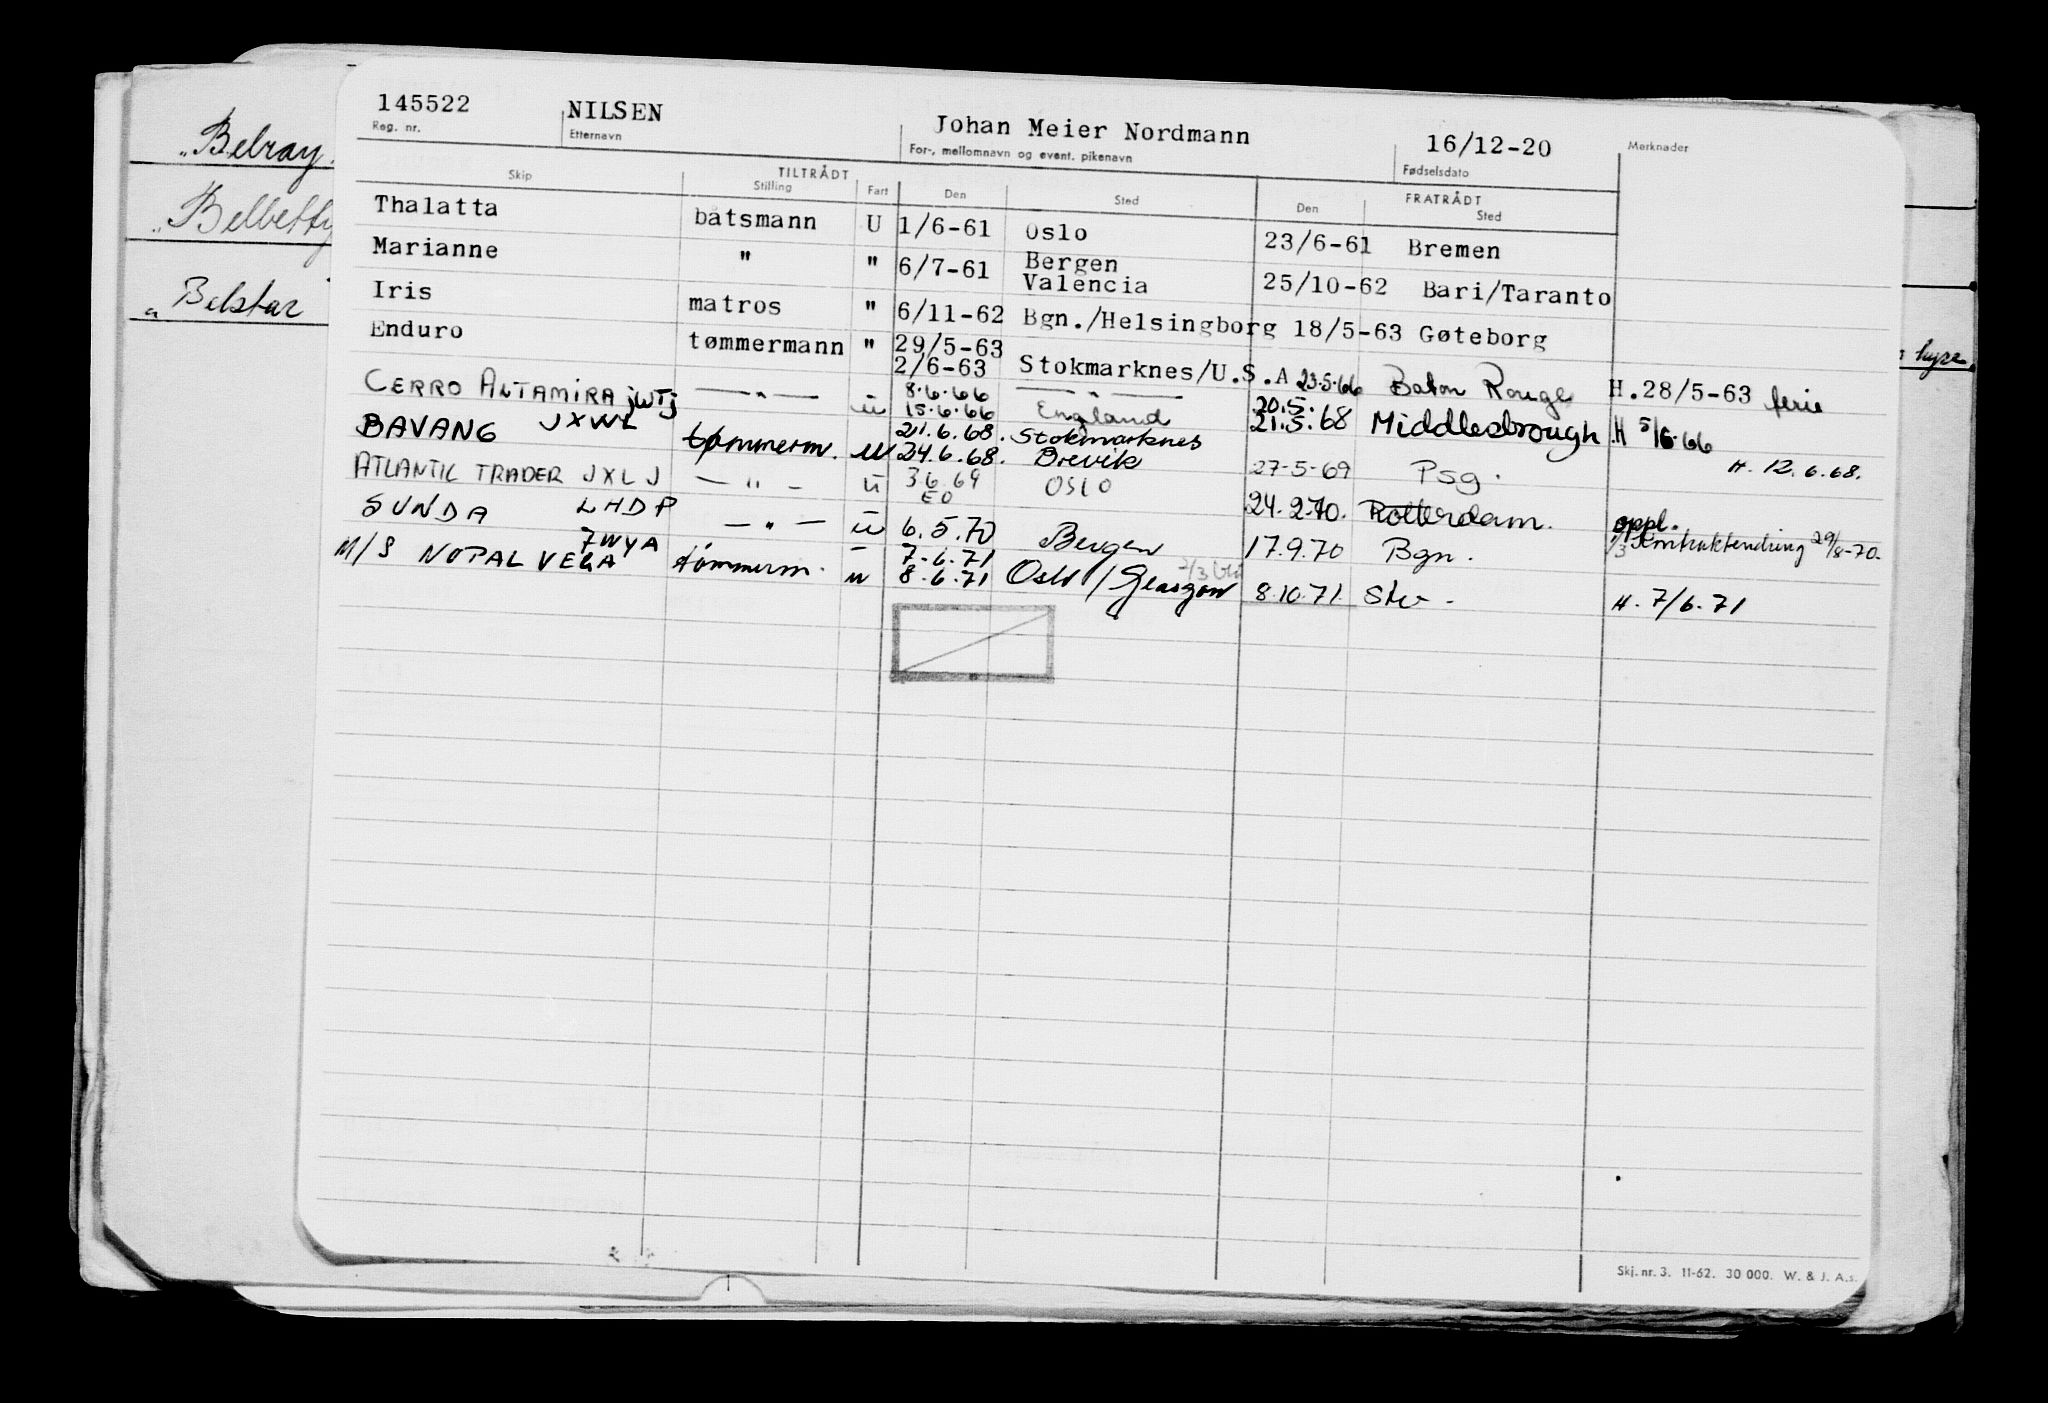 145522 NILSEN Johan Meier Nordmann 16/12-20 Merknader
Reg. nr. Etternavn For-, mellomnavn og event. pikenavn Fødselsdato
TILTRÅDT FRATRÅDT
Skip Stilling Fart Den Sted Den Sted
Thalatta båtsmann U 1/6-61 Oslo 23/6-61 Bremen
Marianne " " 6/7-61 Bergen Valencia 25/10-62 Bari/Taranto
Iris matros " 6/11-62 Bgn./Helsingborg 18/5-63 Gøteborg
Enduro tømmermann " 29/5-63
2/6-63 Stokmarknes/U.S.A 23.5.66 Baton Rouge H.28/5-63 ferie
CERRO ALTAMIRA JWTJ — " — 8.6.66 — " —
JXWL u 15.6.66 England 20.5.
21.5.68 Middlesbrough H 5/6-66
BAVANG tømmerm. u 21.6.68. Stokmarknes
24.6.68. Brevik H. 12.6.68.
ATLANTIC TRADER JXLJ — " — u 3.6.69 OSLO 27-5-69 Psg.
EO
SUNDA LHDP — " — u 6.5.70 Bergen 24.2.70. Rotterdam. oppl.
Kontraktendring 29/8-70.
17.9.70 Bgn.
M/S NOPAL VEGA 7WYA tømmerm. u 7.6.71
8.6.71 Oslo / Glasgow 8.10.71. Stv. H. 7/6.71
"Belray"
"Belbetty
"Belstar
hyre
Skj. nr. 3. 11-62. 30 000. W. & J. A.s.